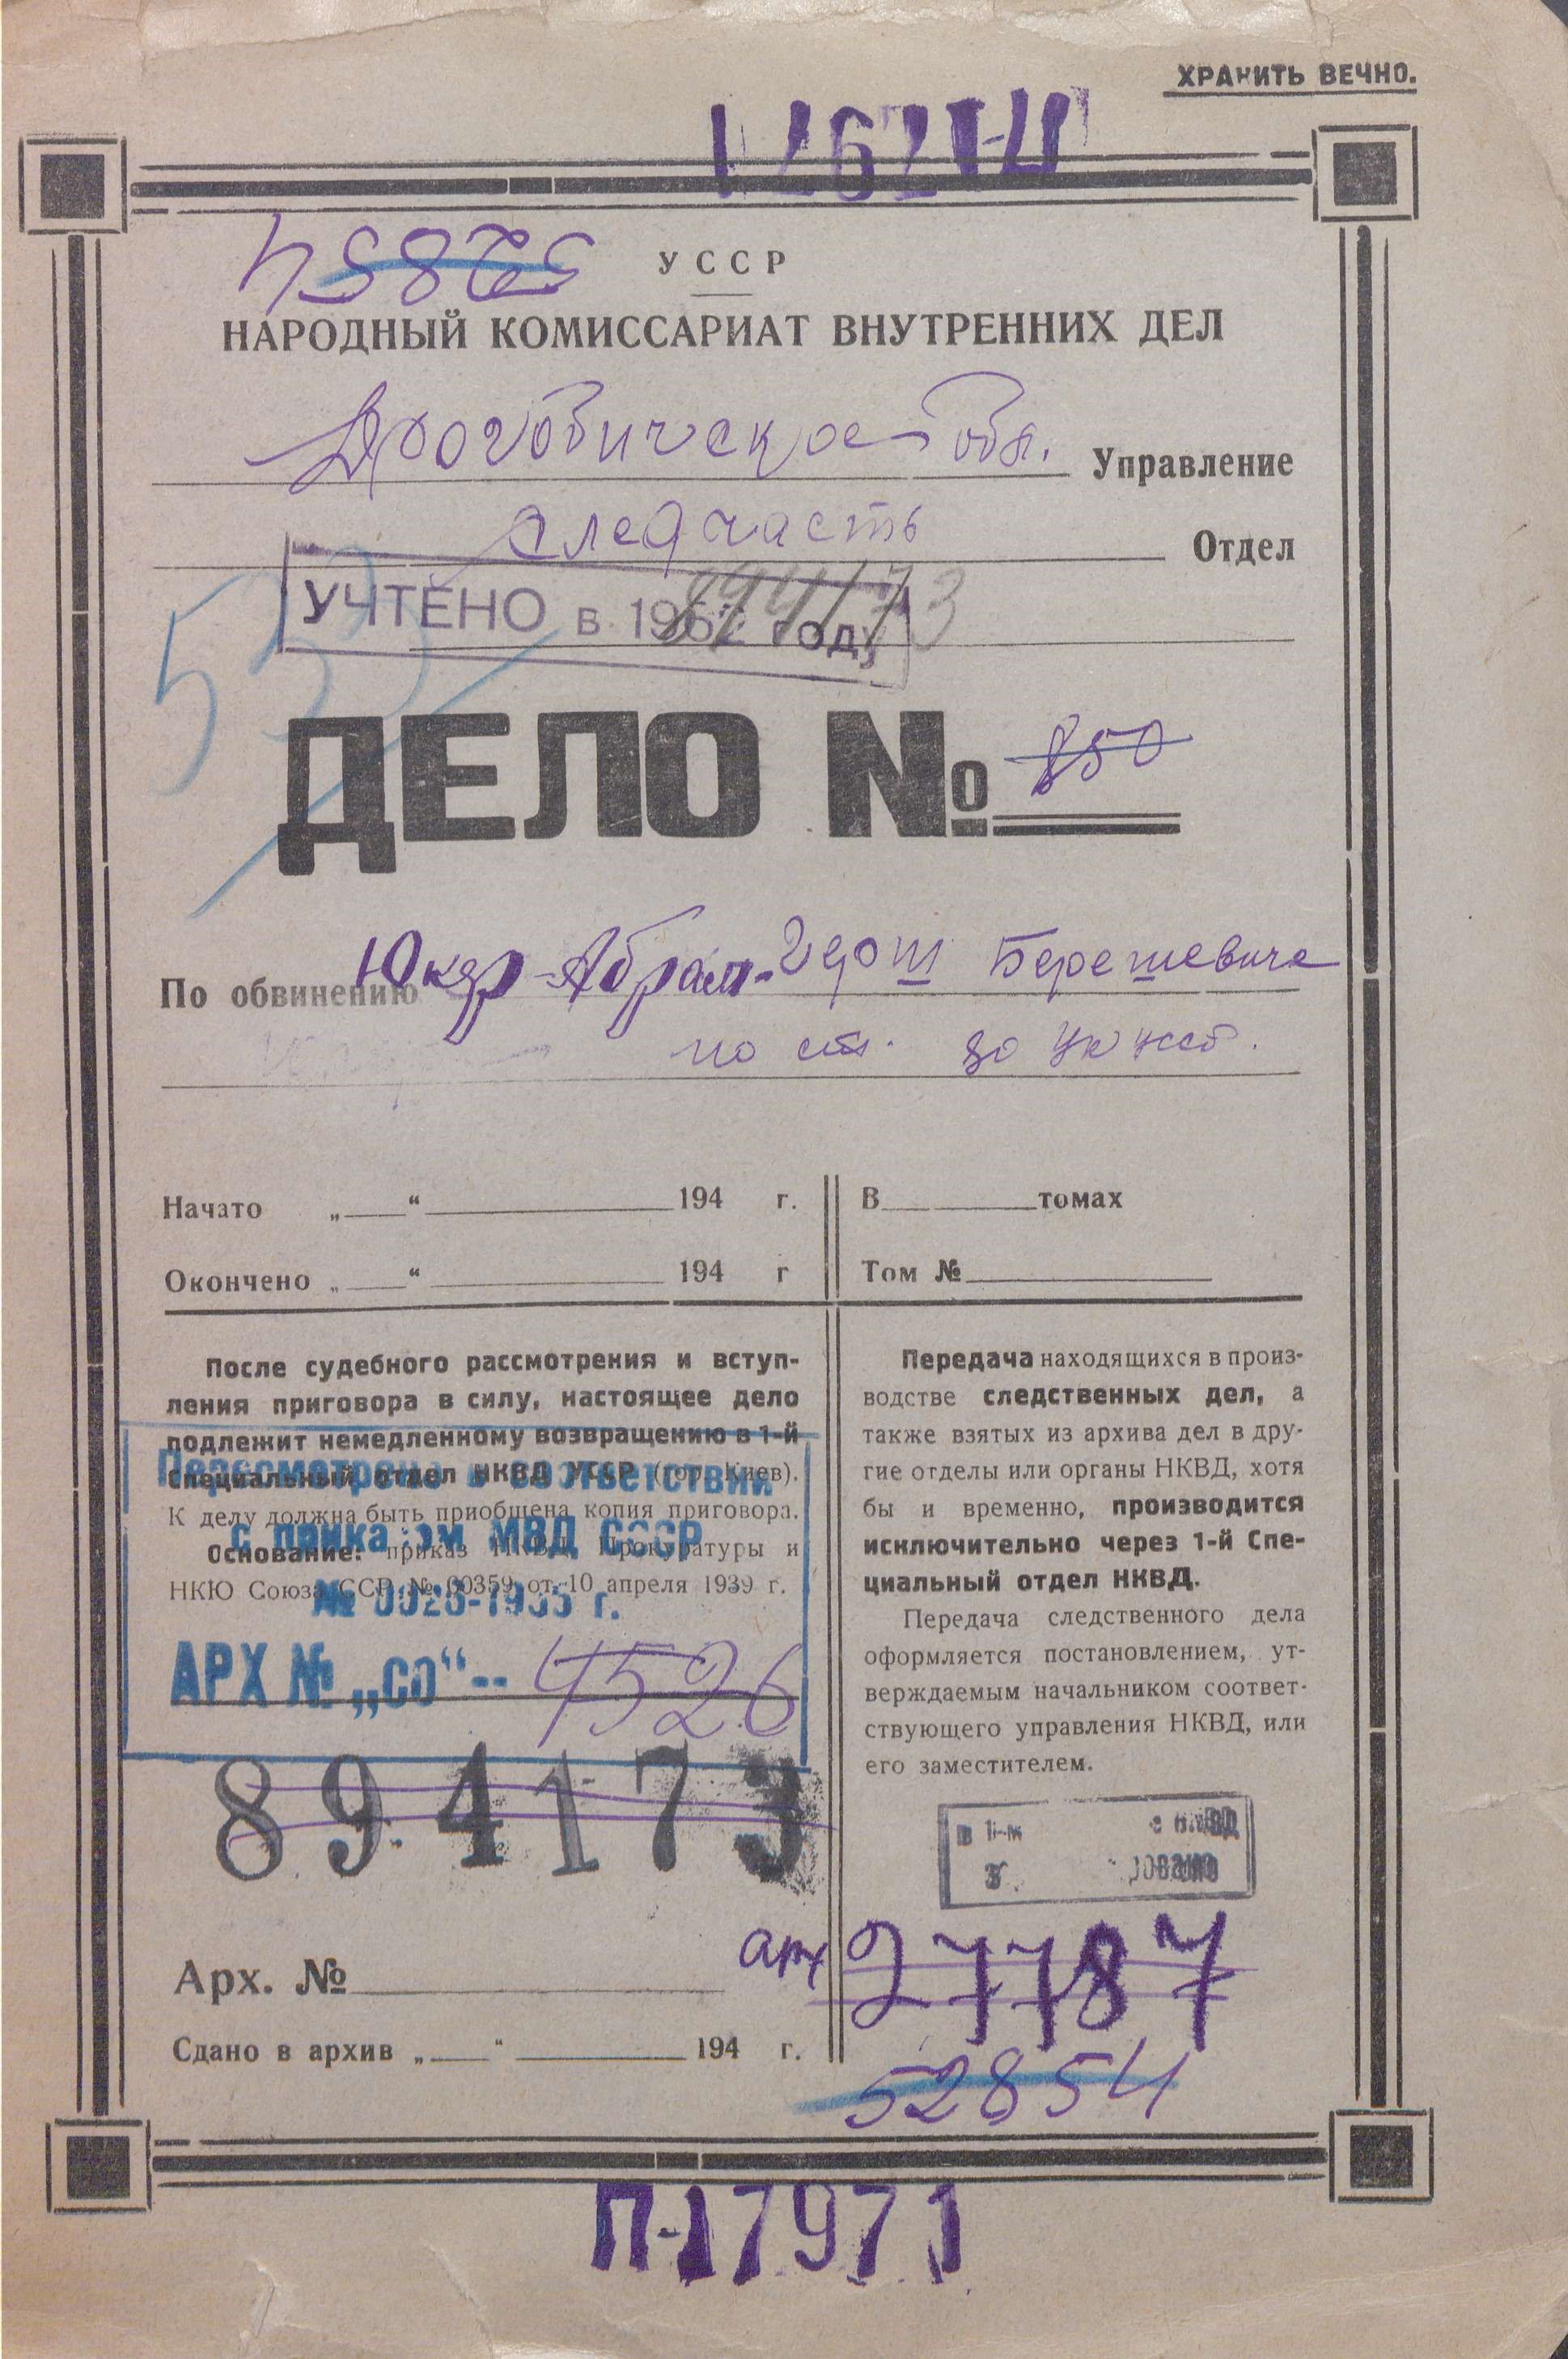 ХРАНИТЬ ВЕЧНО.
П-17971
52854
УССР
НАРОДНЫЙ КОМИССАРИАТ ВНУТРЕННИХ ДЕЛ
Дрогобическое обл. Управление
следчасть Отдел
УЧТЕНО в 1962 году
894173
ДЕЛО № 850
По обвинению Юкер-Абрам-Герш Берешевича
по ст. 80 УК УССР.
Начато „ “ 194 г.
Окончено „ “ 194 г
В томах
Том №
После судебного рассмотрения и вступ-
ления приговора в силу, настоящее дело
подлежит немедленному возвращению в 1-й
Специальный отдел НКВД УССР (гор. Киев).
К делу должна быть приобщена копия приговора.
Основание: приказ НКВД, Прокуратуры и
НКЮ Союза ССР № 00359 от 10 апреля 1939 г.
Пересмотрено в соответствии
с приказом МВД СССР
№ 0028-1955 г.
АРХ № „со“-- 4526
894173
Арх. №
Сдано в архив „ “ 194 г.
Передача находящихся в произ-
водстве следственных дел, а
также взятых из архива дел в дру-
гие отделы или органы НКВД, хотя
бы и временно, производится
исключительно через 1-й Спе-
циальный отдел НКВД.
Передача следственного дела
оформляется постановлением, ут-
верждаемым начальником соответ-
ствующего управления НКВД, или
его заместителем.
арх 27787
52854
П-17971